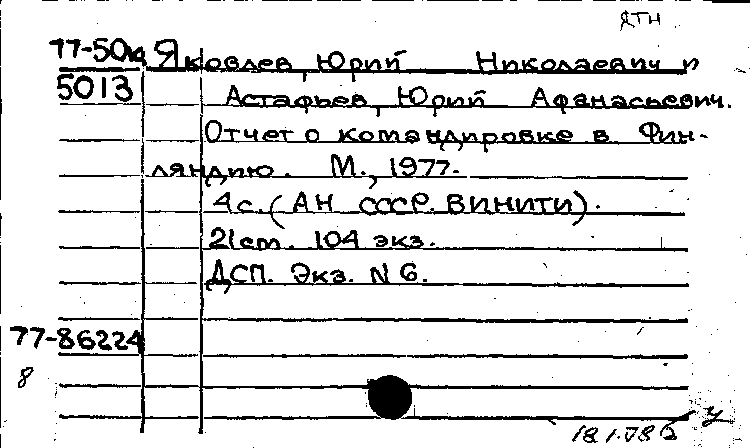 ЯТН
77-50а Яковлев, Юрий Николаевич и
5013 Астафьев, Юрий Афанасьевич.
Отчет о командировке в Фин-
ляндию. М., 1977.
4 с. (АН СССР. ВИНИТИ).
21 см. 104 экз.
ДСП. Экз. N 6.
77-86224
8